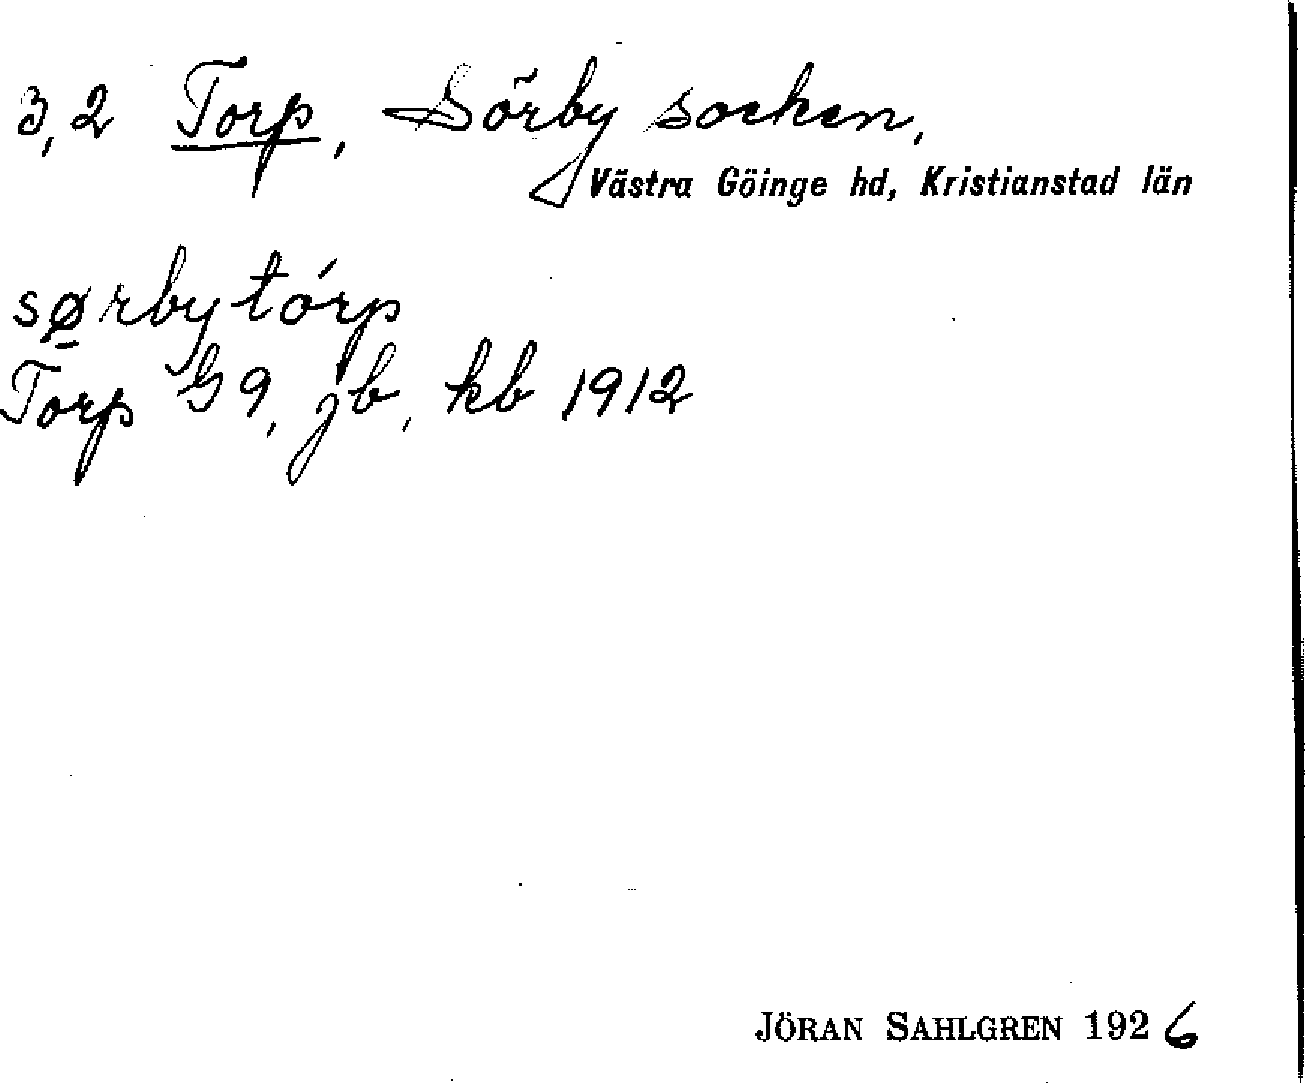 3,2 Torp, Sörby socken,
Västra Göinge hd, Kristianstad län
sø̱rbytórp
Torp G 9, jb, kb 1912
JÖRAN SAHLGREN 1926